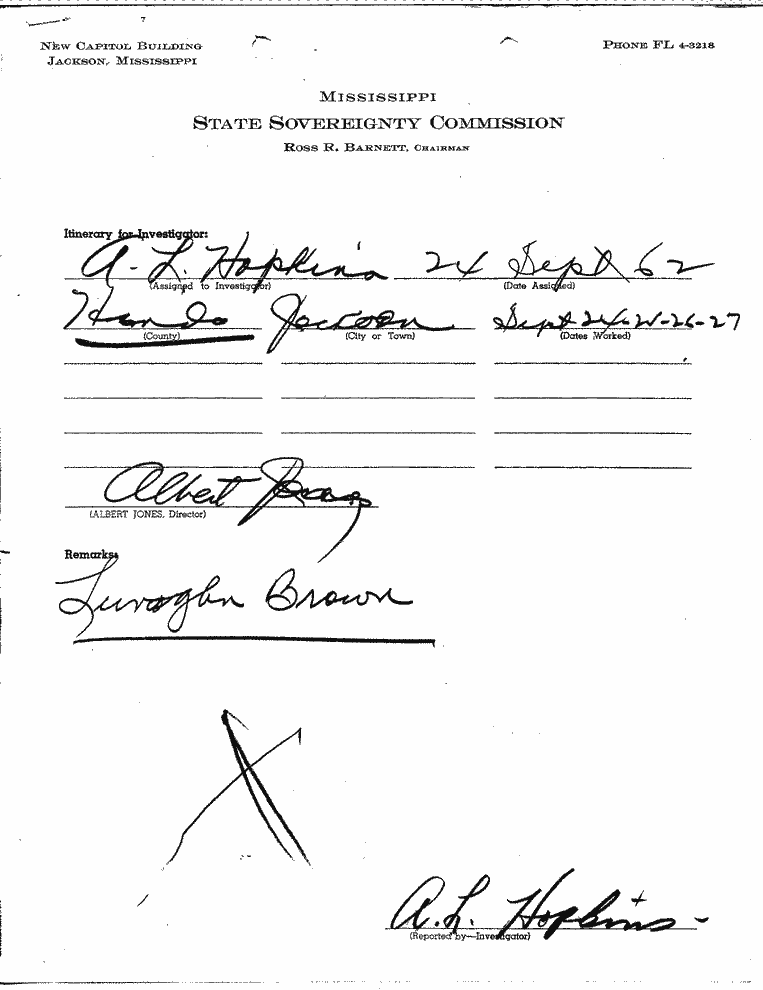 7
New Capitol Building
Jackson, Mississippi
Phone FL 4-3218
Mississippi
State Sovereignty Commission
Ross R. Barnett, Chairman
Itinerary for Investigator:
A. L. Hopkins 24 Sept 62
(Assigned to Investigator) (Date Assigned)
Hinds Jackson Sept 24-25-26-27
(County) (City or Town) (Dates Worked)
Albert Jones
(ALBERT JONES, Director)
Remarks:
Luvaghn Brown
A. L. Hopkins
(Reported by—Investigator)